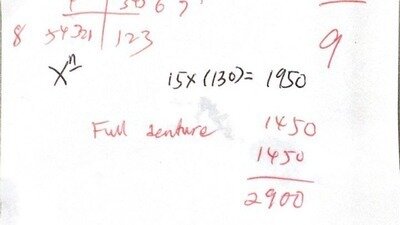 8 54321 | 123
9
Xⁿ 15x(130)= 1950
Full denture 1450
1450
2900